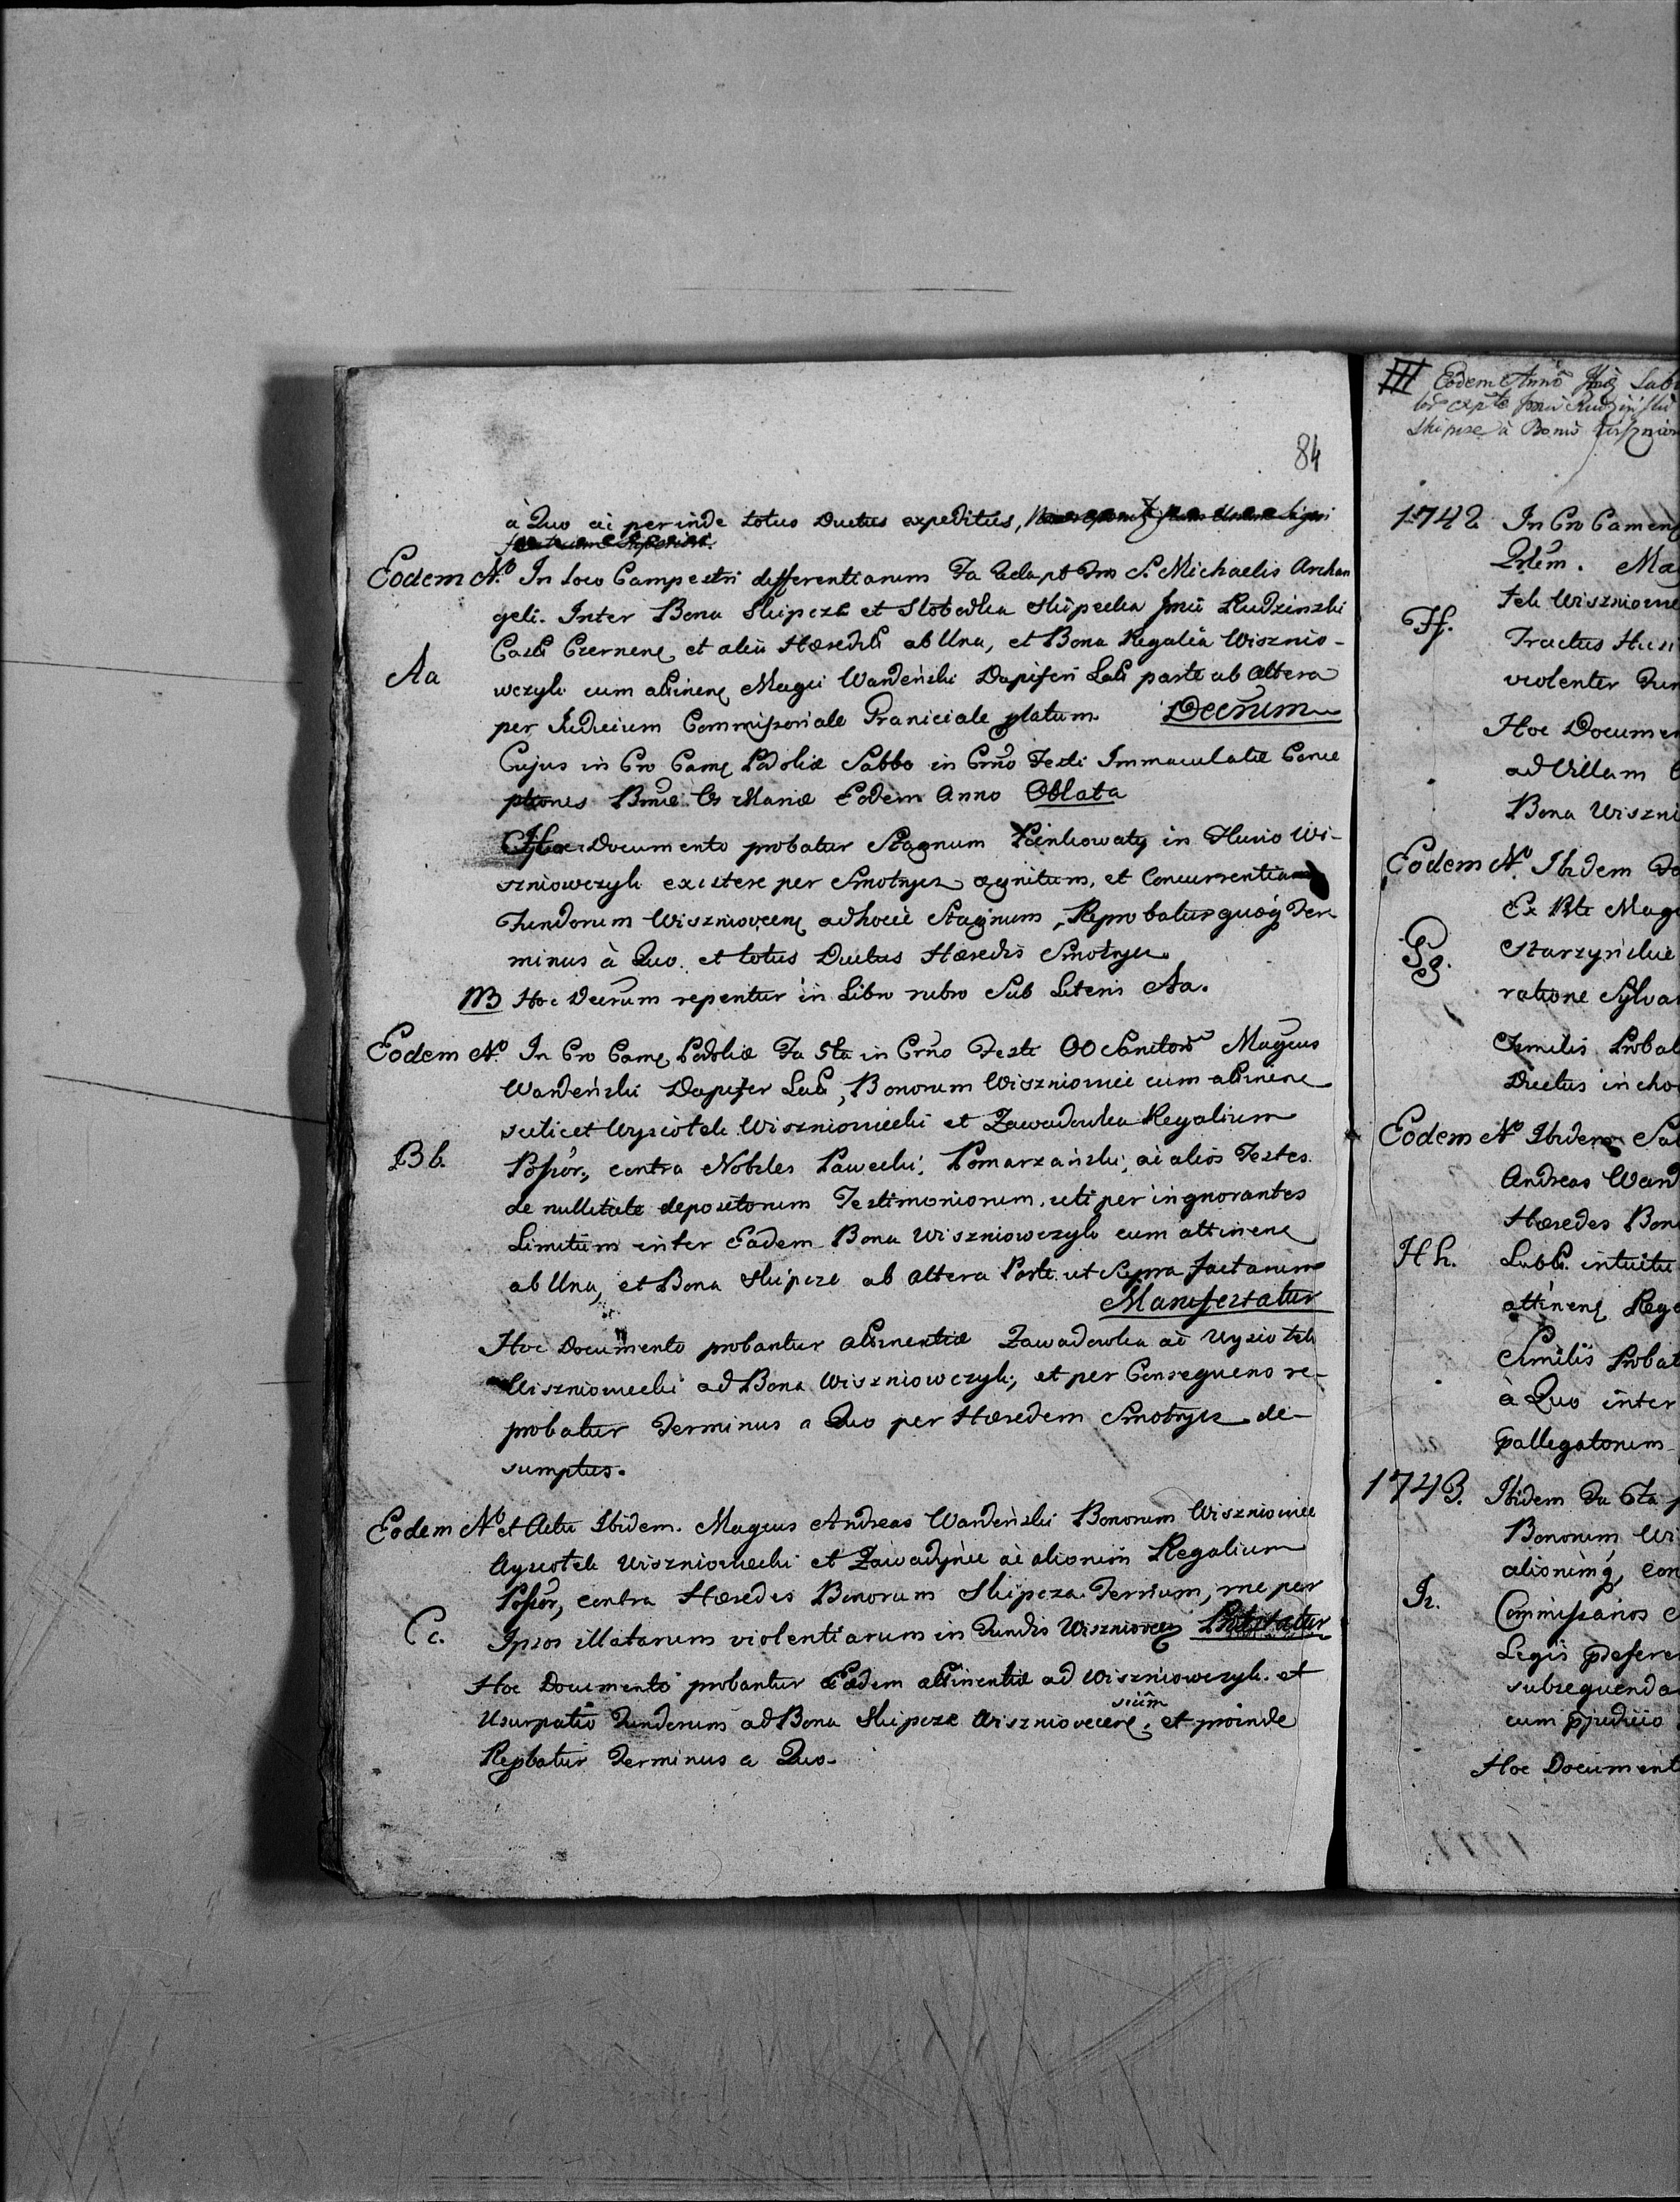 84
à Quo ac perinde totus Ductus expeditus,
Eodem Aº. In Loco Campestri differentiarum Fa 2da pt Fm S. Michaelis Archan
geli. Inter Bona Skipcze et Slobodka Skipecka Rudzinski
Czernenc et aliis Hæredib ab Una, et Bona Regalia Wisznio-
Aa
wczyk cum attinenc Magci Wardeński Dapiferi Lati parte ab Altera
per Judicium Commissoriale Graniciale platum Decrum
Cujus in Cro Camc Podoliæ Sabbo in Crno Festi Immaculatæ Conce
ptiones Bmæ V Mariæ Eodem Anno Oblata
Hoc Documento probatur Stagnum in Fluvio Wi-
szniowczyk existere per Smotrycz agnitum, et Concurrentia
Fundorum Wiszniovcenc ad hocce Stagnum, Reprobatur quoq Ter
minus à Quo. et totus Ductus Hæredis Smotrycz
NB Hoc Decrum reperitur in Libro rubro Sub Literis Aa.
Eodem Aº. In Cro Camc Podoliæ Fa 5ta in Crno Festi OO Sanctor Magcus
Wardeński Dapifer Lati, Bonorum Wiszniowce cum attinenc
scilicet Wysiotek Wiszniowiecki et Zawadowka Regalium
Bb.
Possor, contra Nobiles Pawecki, Pomarzański, ac alios Testes
de nullitate depositorum Testimoniorum, uti per ingnorantes
Limitum inter Eadem Bona Wiszniowczyk cum attinenc
ab Una, et Bona Skipcze ab Altera Parte ut Supra factarum
Manifestatur
Hoc Documento probantur attinentiæ Zawadowka ac Wysiotek
Wiszniowiecki ad Bona Wiszniowczyk, et per Consequens re-
probatur Terminus a Quo per Hæredem Smotrycz de-
sumptus.
Eodem Aº et Actu Ibidem. Magcus Andreas Wardeński Bonorum Wiszniowce
Wysiotek Wiszniowiecki et Zawadyńce ac aliorum Regalium
Possor, contra Hæredes Bonorum Skipcza Terrium, rne per
Cc.
Ipsos illatarum violentiarum in Fundis Wiszniovcen Protestatur
Hoc Documento probantur Eædem attinentiæ ad Wiszniowczyk et
sium
Usurpatio Fundorum ad Bona Skipcze Wiszniovcenc, et proinde
Repbatur Terminus a Quo.
Eodem Anno
Skipcze à Bonis
1742 In Cro Camen
Ff.
Tractus
violenter
Hoc Documen
ad Villam
Bona Wiszni
Eodem Aº. Ibidem
Ex Pte Mag
Gg.
Starzyńskie
ratione Sylva
Similis Probat
Ductus incho
Eodem Aº Ibidem Sa
Andreas Ward
Hæredes Bon
Hh.
intuitu
attinenc Rega
Similis Probat
à Quo inter
pallegatorum
1743. Ibidem Fa 6ta
Bonorum Wi
aliorumq, con
Ii.
Commissarios
Legis
subsequenda
cum pjudicio
Hoc Document